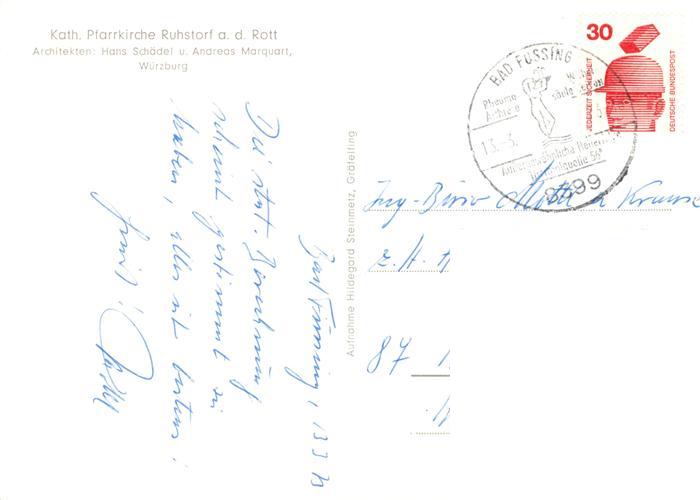 Kath. Pfarrkirche Ruhstorf a. d. Rott
Architekten: Hans Schädel u. Andreas Marquart,
Würzburg
Aufnahme Hildegard Steinmetz, Gräfelfing
30
JEDERZEIT SICHERHEIT
DEUTSCHE BUNDESPOST
BAD FÜSSING
Rheuma
13.-3.
Außergewöhnliche Heilerfolge
Thermalquelle 56°
8399
Bad Füssing, 13.3.
Die stat. Berechnung
scheint gestimmt zu
haben, alles ist bestens!
Ing-Büro & Krause
z. H.
87